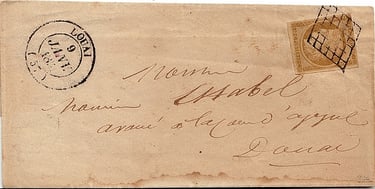 DOUAI
9
JANV.
(57)
Monsieur
Monsieur
avoué à la cour d'appel
Douai